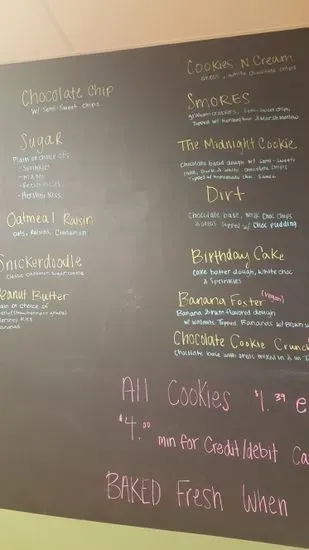 Chocolate Chip
w/ Semi-Sweet Chips
Sugar
Plain or choice of:
- Sprinkles
- M & M's
- Hershey Kiss
Oatmeal Raisin
oats, Raisins, Cinnamon
Snickerdoodle
classic cinnamon sugar cookie
eanut Butter
ain or choice of
(strawberry or grape)
ershey Kiss
ananas
Cookies N Cream
oreos, white chocolate chips
Smores
graham crackers, semi-sweet chips,
Topped w/ Marshmallow
The Midnight Cookie
Chocolate based dough w/ semi-sweet,
milk, Dark & white chocolate chips
Topped w/ homemade choc. sauce
Dirt
Chocolate base, milk choc chips
& oreos topped w/ choc pudding
Birthday Cake
cake batter dough, white choc
& sprinkles
Banana Foster (Vegan)
Banana & rum flavored dough
w/ walnuts Topped Bananas w/ Brown su
Chocolate Cookie Crunch
chocolate base with oreos mixed in & on To
All Cookies $1.39 e
$4.00 min for Credit/debit Ca
BAKED Fresh When